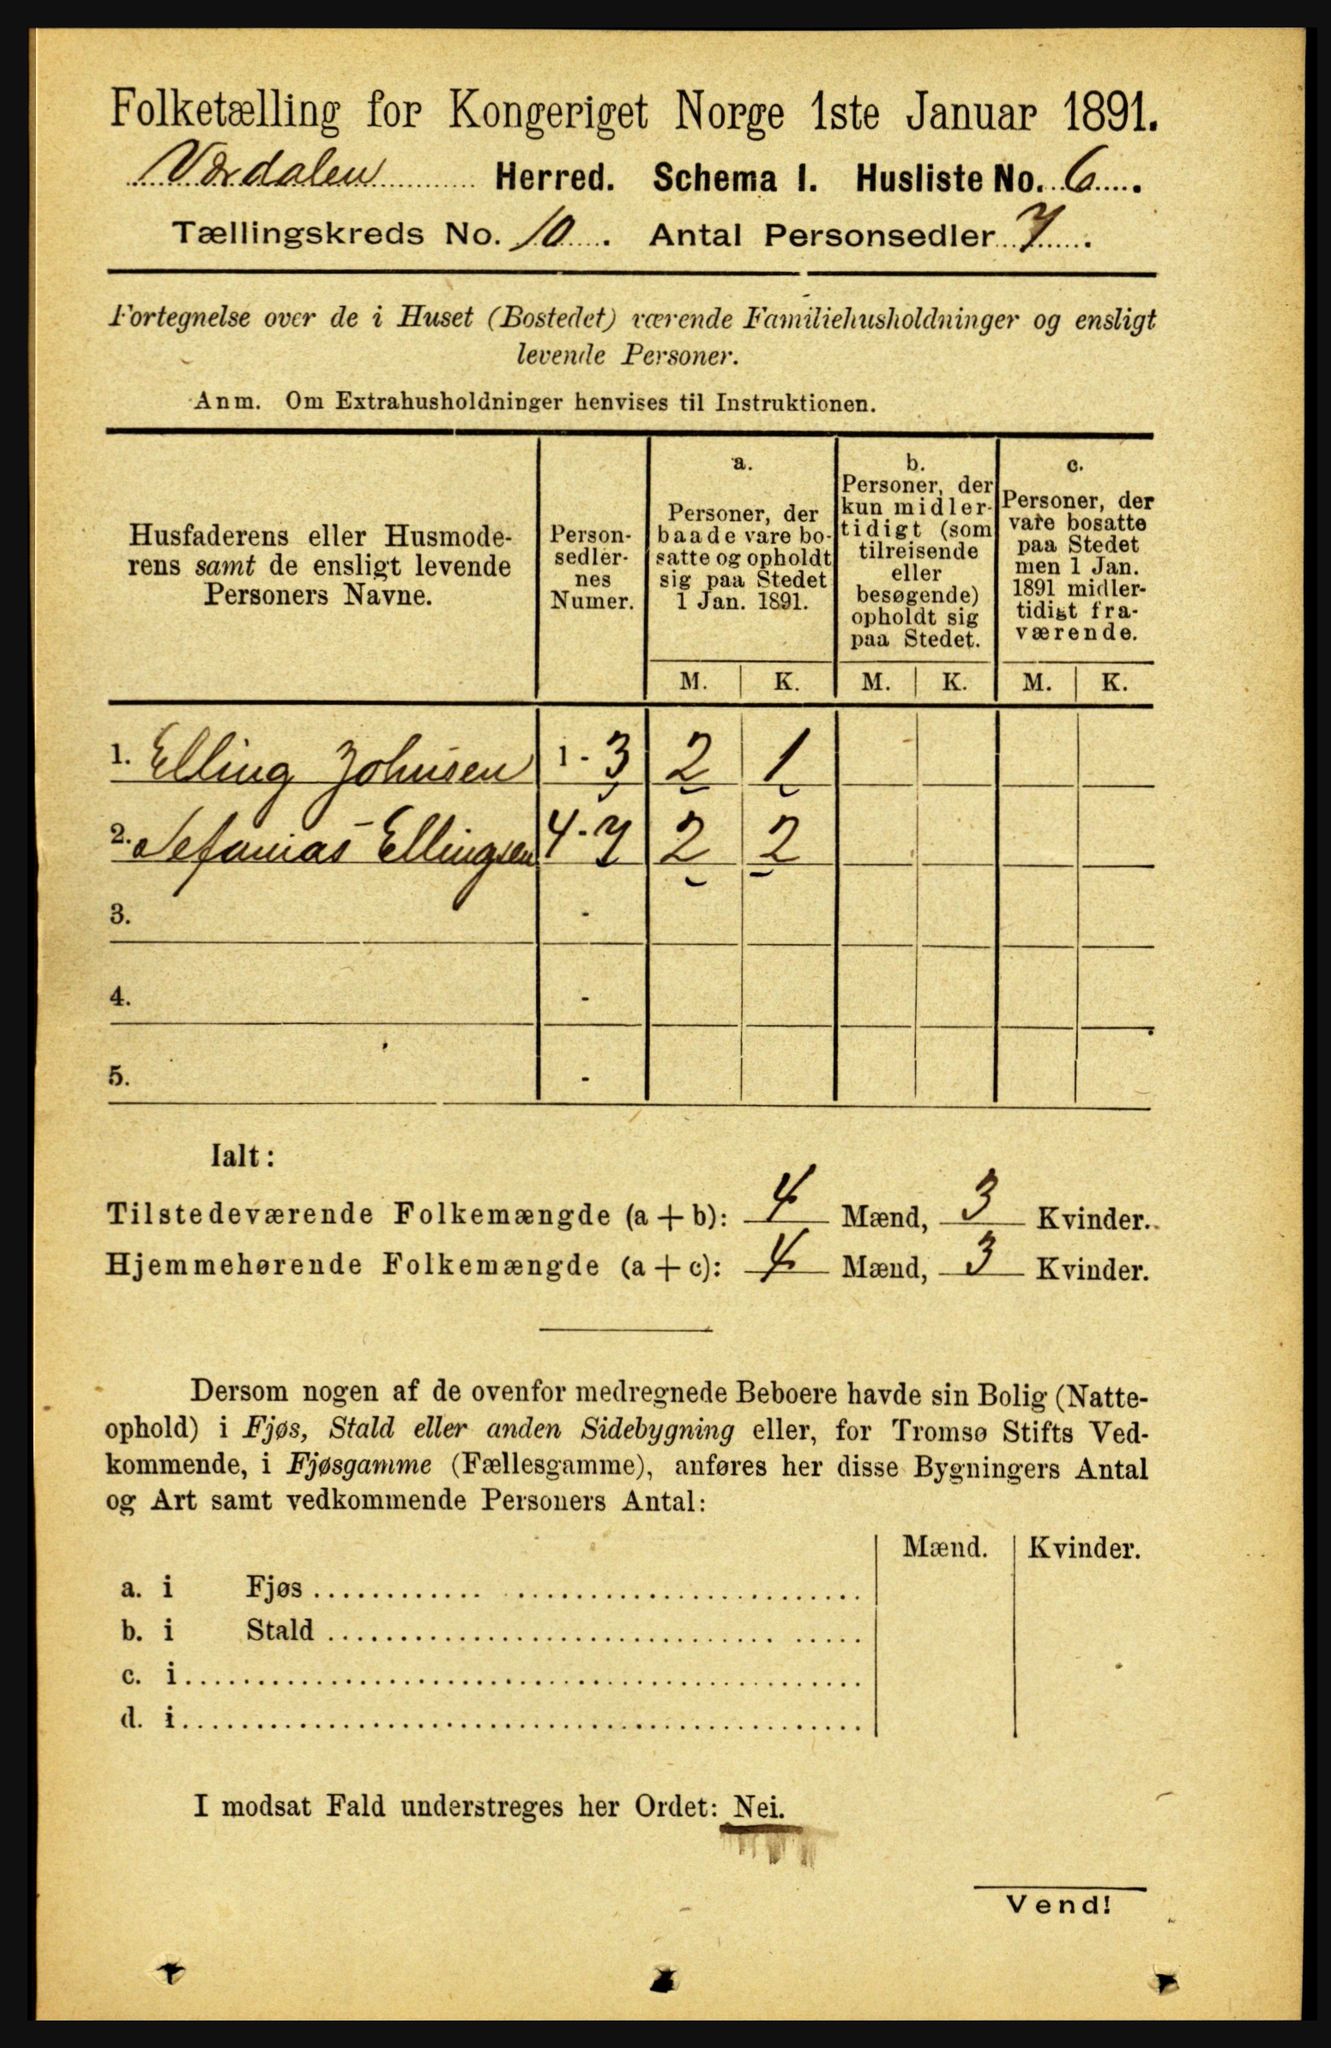 Folketælling for Kongeriget Norge 1ste Januar 1891.
Værdalen Herred. Schema I. Husliste No. 6.
Tællingskreds No. 10. Antal Personsedler 7.
Fortegnelse over de i Huset (Bostedet) værende Familiehusholdninger og ensligt
levende Personer.
Anm. Om Extrahusholdninger henvises til Instruktionen.
Husfaderens eller Husmode-
rens samt de ensligt levende
Personers Navne.
Person-
sedler-
nes
Numer.
a.
Personer, der
baade vare bo-
satte og opholdt
sig paa Stedet
1 Jan. 1891.
b.
Personer, der
kun midler-
tidigt (som
tilreisende
eller
besøgende)
opholdt sig
paa Stedet.
c.
Personer, der
vare bosatte
paa Stedet
men 1 Jan.
1891 midler-
tidigt fra-
værende.
M. K. M. K. M. K.
1. Elling Johnsen 1 - 3 2 1
2. Sefanias Ellingsen 4 - 7 2 2
3. -
4. -
5. -
Ialt:
Tilstedeværende Folkemængde (a + b): 4 Mænd, 3 Kvinder.
Hjemmehørende Folkemængde (a + c): 4 Mænd, 3 Kvinder.
Dersom nogen af de ovenfor medregnede Beboere havde sin Bolig (Natte-
ophold) i Fjøs, Stald eller anden Sidebygning eller, for Tromsø Stifts Ved-
kommende, i Fjøsgamme (Fællesgamme), anføres her disse Bygningers Antal
og Art samt vedkommende Personers Antal:
Mænd. Kvinder.
a. i Fjøs
b. i Stald
c. i
d. i
I modsat Fald understreges her Ordet: Nei.
Vend!